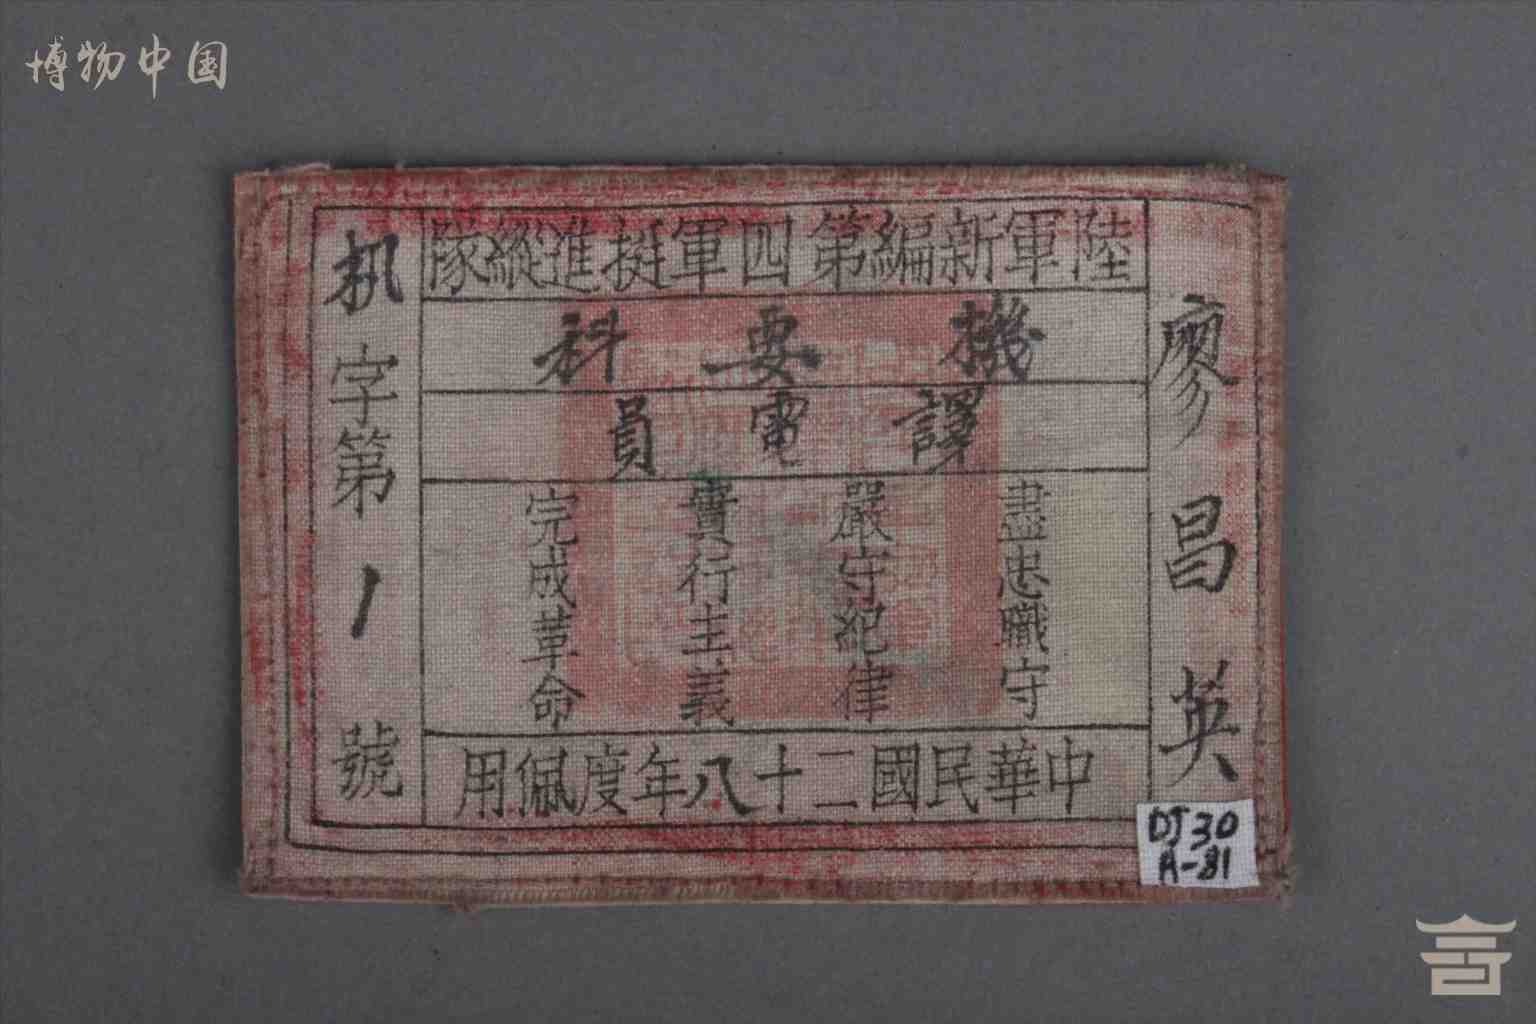 博物中国
廖昌英
陸軍新編第四軍挺進縱隊
機要科
譯電員
盡忠職守
嚴守紀律
實行主義
完成革命
中華民國二十八年度佩用
机字第1號
DJ30
A-81